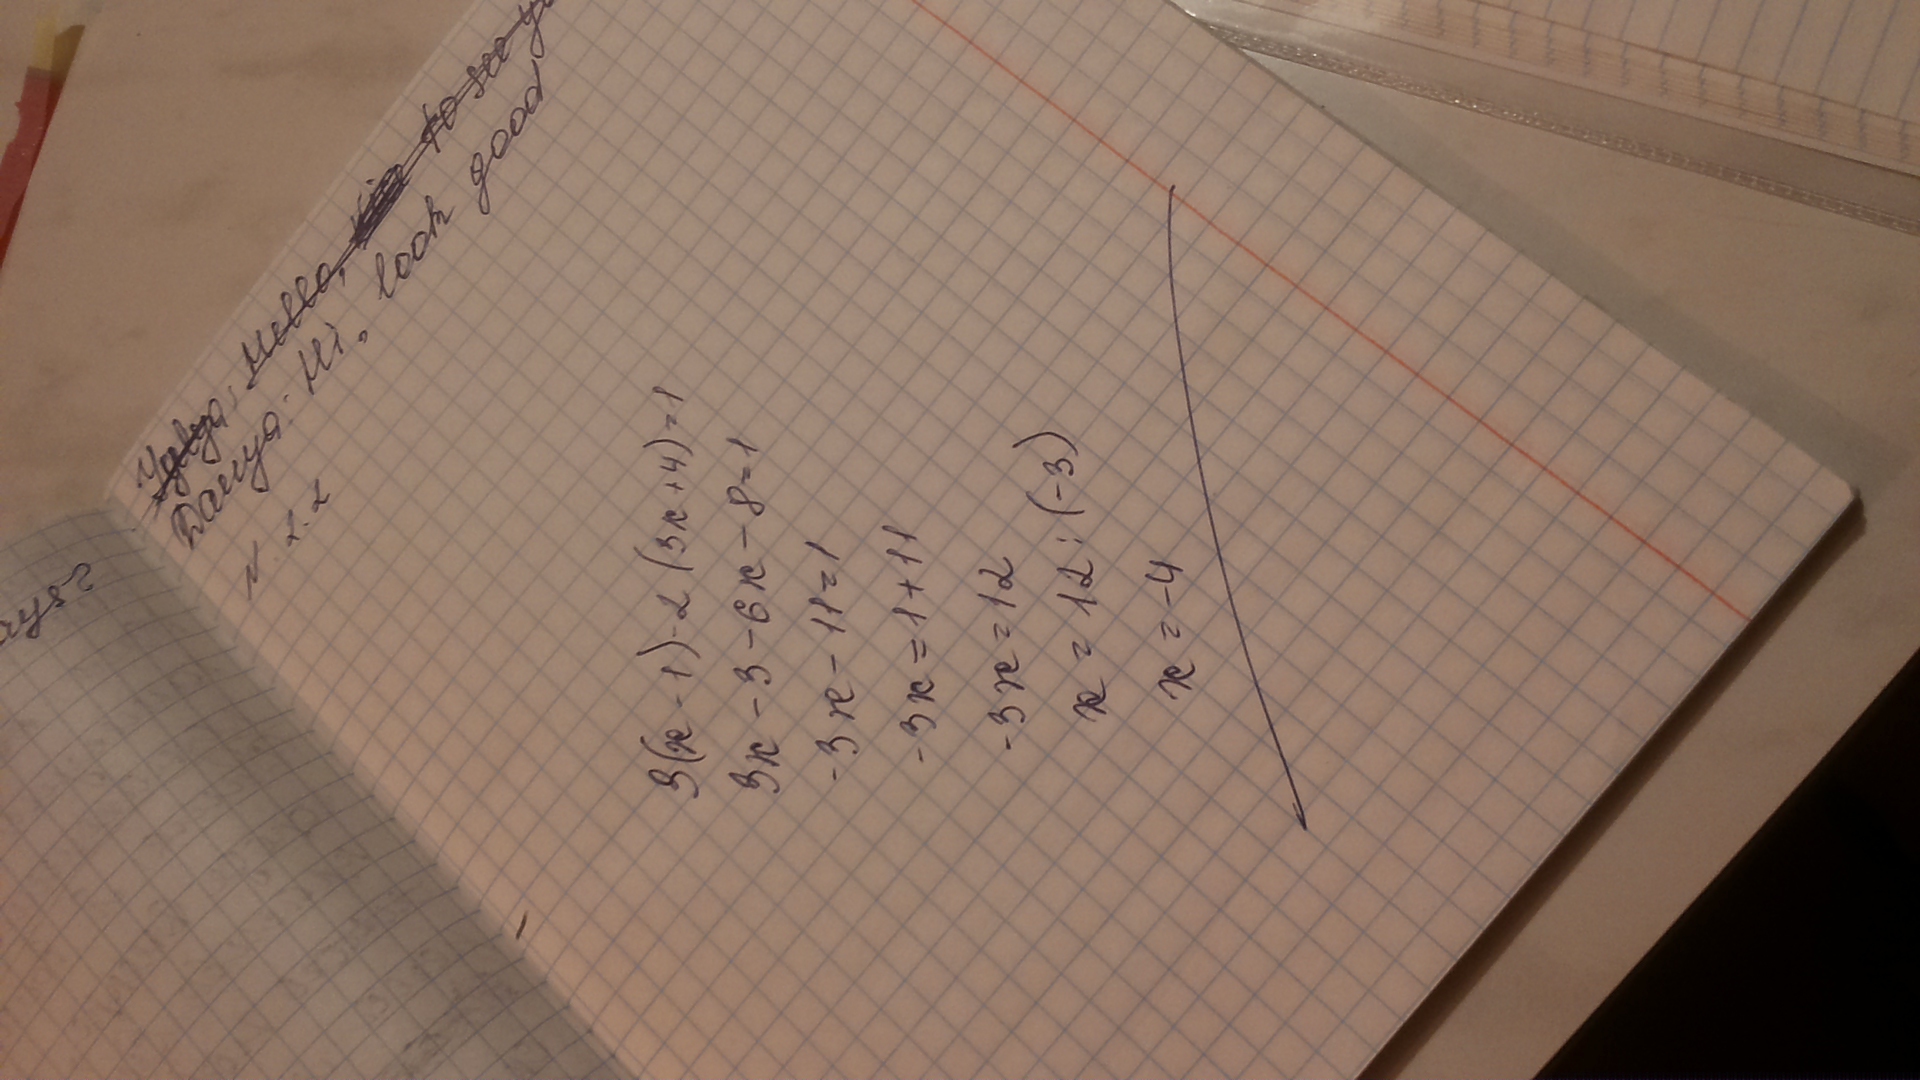 Hello, to see
Danya: Hi. look good
N. 2.2
3(x-1)-2(3x+4)=1
3x-3-6x-8=1
-3x-11=1
-3x=1+11
-3x=12
x=12:(-3)
x=-4